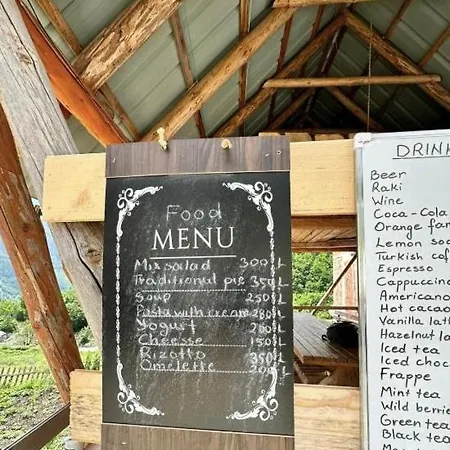 Food
MENU
Mix salad 300L
Traditional pie 350L
Soup 250L
Pasta with cream 280L
Yogurt 200L
Cheesse 150L
Rizotto 350L
Omelette 200L
DRINK
Beer
Raki
Wine
Coca-Cola
Orange fan
Lemon so
Turkish cof
Espresso
Cappuccin
Americano
Hot choca
Vanilla lat
Hazelnut la
Iced tea
Iced choc
Frappe
Mint tea
Wild berrie
Green tea
Black tea